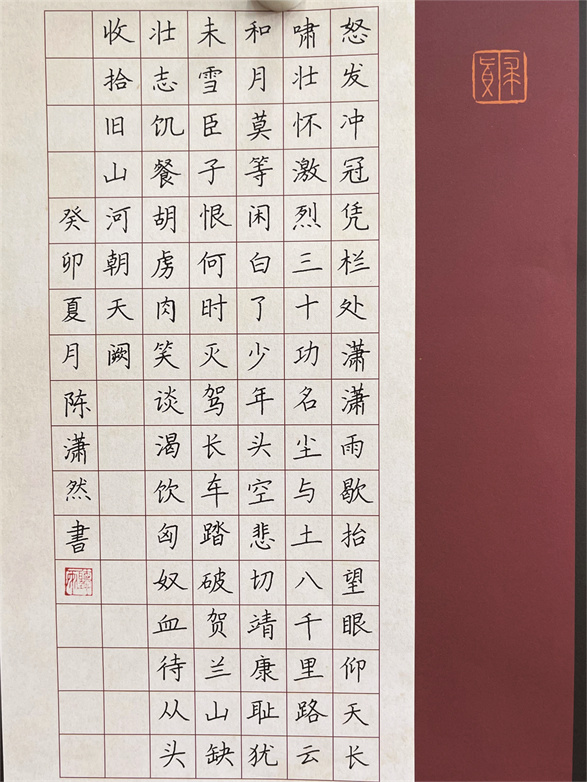 怒发冲冠凭栏处潇潇雨歇抬望眼仰天长
啸壮怀激烈三十功名尘与土八千里路云
和月莫等闲白了少年头空悲切靖康耻犹
未雪臣子恨何时灭驾长车踏破贺兰山缺
壮志饥餐胡虏肉笑谈渴饮匈奴血待从头
收拾旧山河朝天阙
癸卯夏月陈潇然書